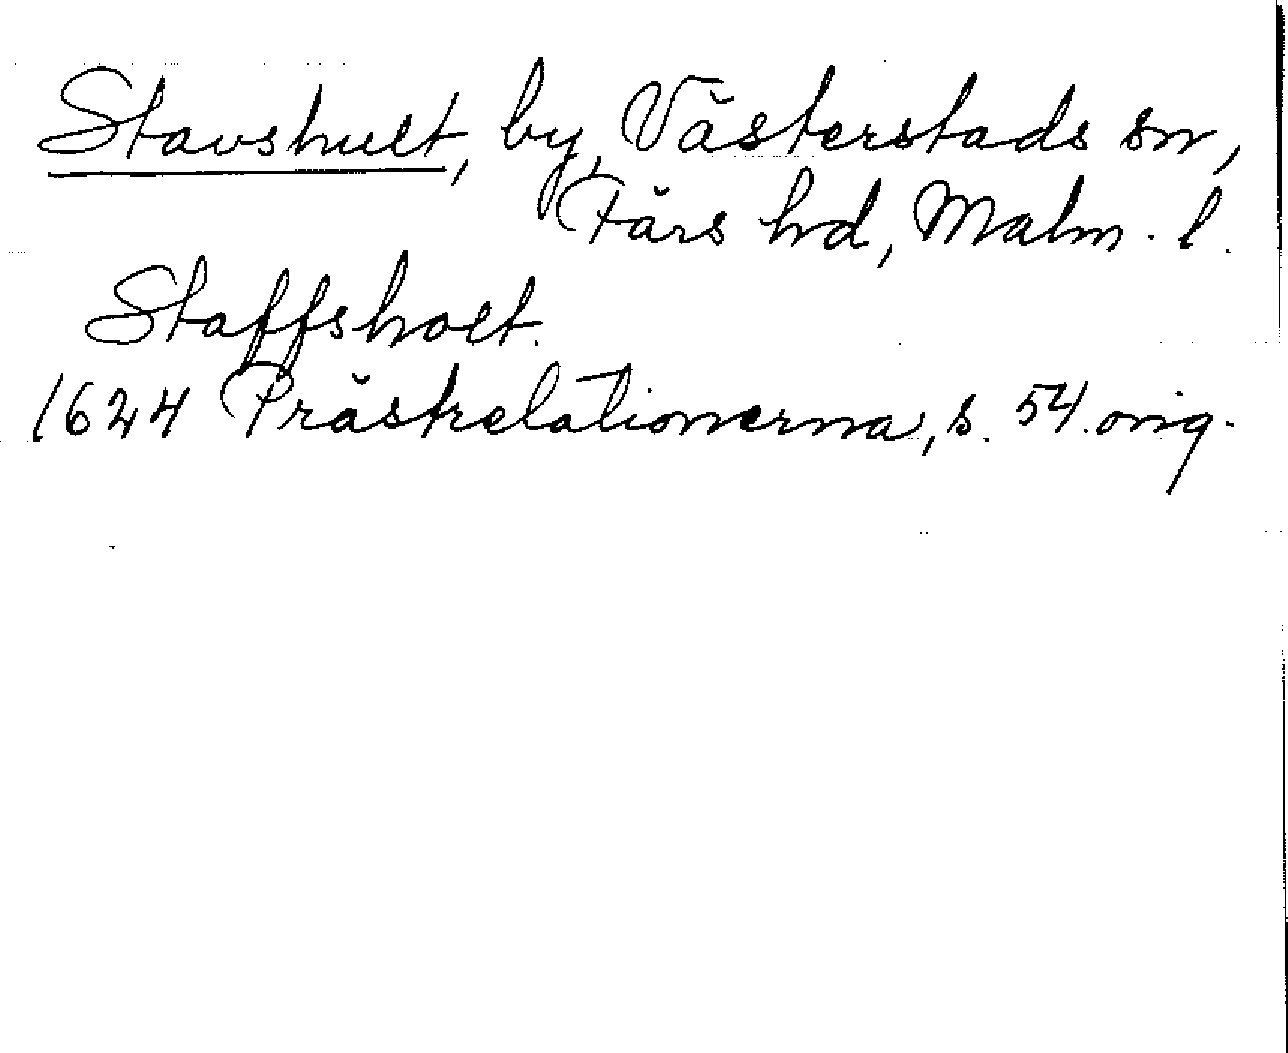 Stavshult, by, Västerstads sn,
Färs hd, Malm. l.
Staffsholt.
1624 Prästrelationerna, s. 54. orig.